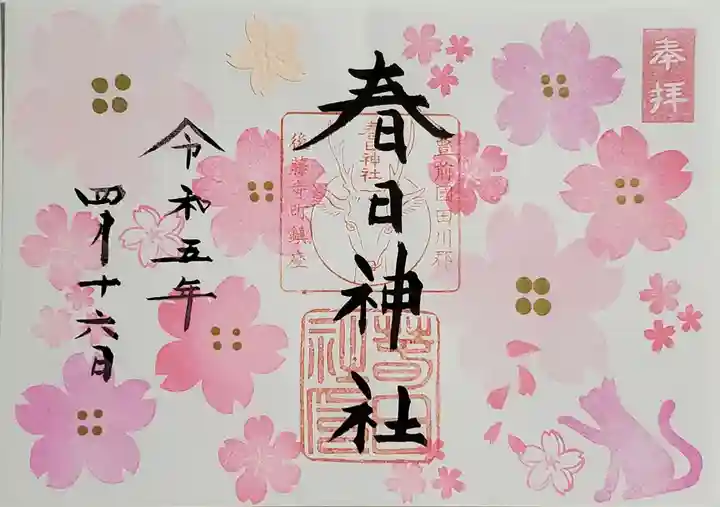 奉拝
豊前国田川郡
春日神社
後藤寺町鎮座
春日神社
令和五年
四月十六日